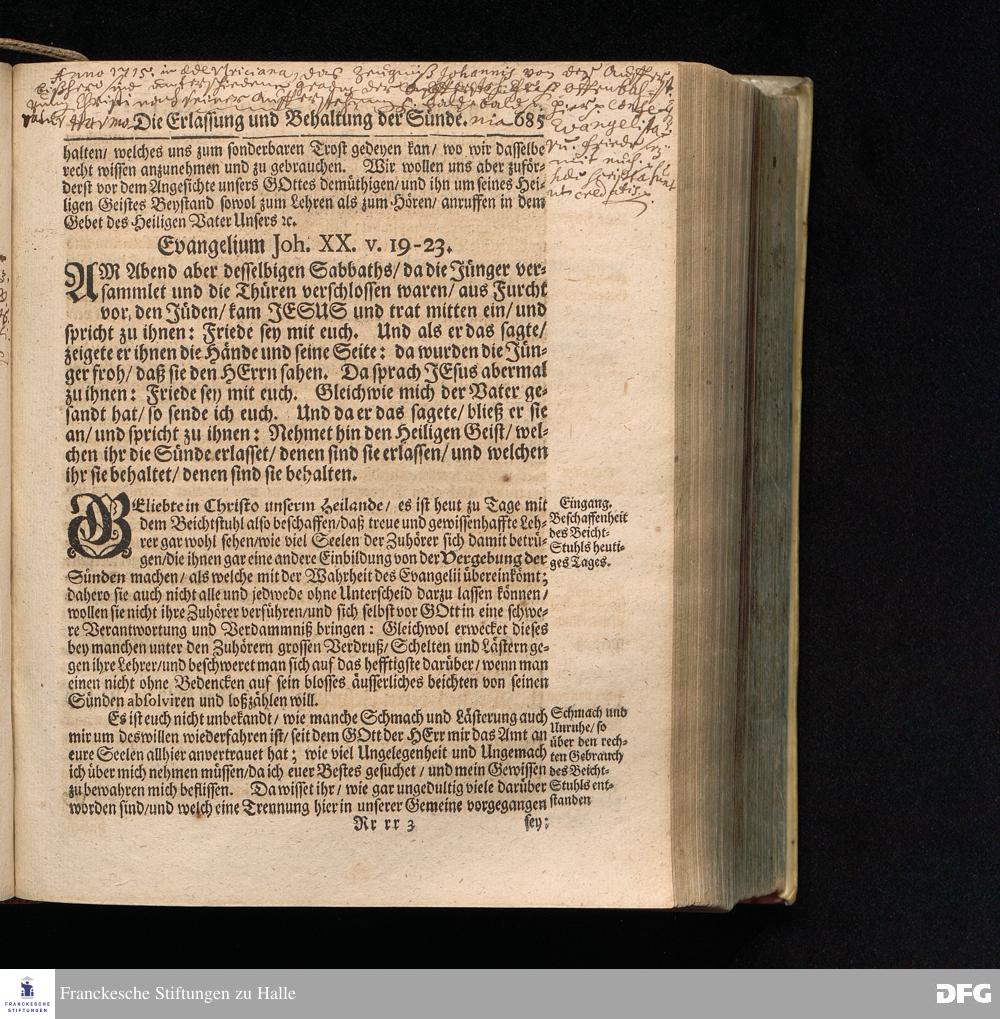 Anno 1715. in aede Ulriciana, das Zeugniß Johannis von der
Christi nach seiner Aufferstehung
Die Erlassung und Behaltung der Sünde. 685
halten/ welches uns zum sonderbaren Trost gedeyen kan/ wo wir dasselbe
recht wissen anzunehmen und zu gebrauchen. Wir wollen uns aber zuför-
derst vor dem Angesichte unsers GOttes demüthigen/ und ihn um seines Hei-
ligen Geistes Beystand sowol zum Lehren als zum Hören/ anruffen in dem
Gebet des Heiligen Vater Unsers ꝛc.
Evangelium Joh. XX. v. 19-23.
AM Abend aber desselbigen Sabbaths/ da die Jünger ver-
sammlet und die Thüren verschlossen waren/ aus Furcht
vor, den Jüden/ kam JESUS und trat mitten ein/ und
spricht zu ihnen: Friede sey mit euch. Und als er das sagte/
zeigete er ihnen die Hände und seine Seite: da wurden die Jün-
ger froh/ daß sie den HErrn sahen. Da sprach JEsus abermal
zu ihnen: Friede sey mit euch. Gleichwie mich der Vater ge-
sandt hat/ so sende ich euch. Und da er das sagete/ bließ er sie
an/ und spricht zu ihnen: Nehmet hin den Heiligen Geist/ wel-
chen ihr die Sünde erlasset/ denen sind sie erlassen/ und welchen
ihr sie behaltet/ denen sind sie behalten.
GEliebte in Christo unserm Heilande/ es ist heut zu Tage mit
dem Beichtstuhl also beschaffen/ daß treue und gewissenhaffte Leh-
rer gar wohl sehen/ wie viel Seelen der Zuhörer sich damit betrü-
gen/ die ihnen gar eine andere Einbildung von der Vergebung der
Sünden machen/ als welche mit der Wahrheit des Evangelii übereinkömt;
dahero sie auch nicht alle und jedwede ohne Unterscheid darzu lassen können/
wollen sie nicht ihre Zuhörer verführen/ und sich selbst vor GOtt in eine schwe-
re Verantwortung und Verdammniß bringen: Gleichwol erwecket dieses
bey manchen unter den Zuhörern grossen Verdruß/ Schelten und Lästern ge-
gen ihre Lehrer/ und beschweret man sich auf das hefftigste darüber/ wenn man
einen nicht ohne Bedencken auf sein blosses äusserliches beichten von seinen
Sünden absolviren und loßzählen will.
Eingang.
Beschaffenheit
des Beicht-
Stuhls heuti-
ges Tages.
Es ist euch nicht unbekandt/ wie manche Schmach und Lästerung auch
mir um deswillen wiederfahren ist/ seit dem GOtt der HErr mir das Amt an
eure Seelen allhier anvertrauet hat; wie viel Ungelegenheit und Ungemach
ich über mich nehmen müssen/ da ich euer Bestes gesuchet/ und mein Gewissen
zu bewahren mich beflissen. Da wisset ihr/ wie gar ungedultig viele darüber
worden sind/ und welch eine Trennung hier in unserer Gemeine vorgegangen
Schmach und
Unruhe/ so
über den rech-
ten Gebrauch
des Beicht-
Stuhls ent-
standen
Rr rr 3 sey:
FRANCKESCHE
STIFTUNGEN
Franckesche Stiftungen zu Halle
DFG